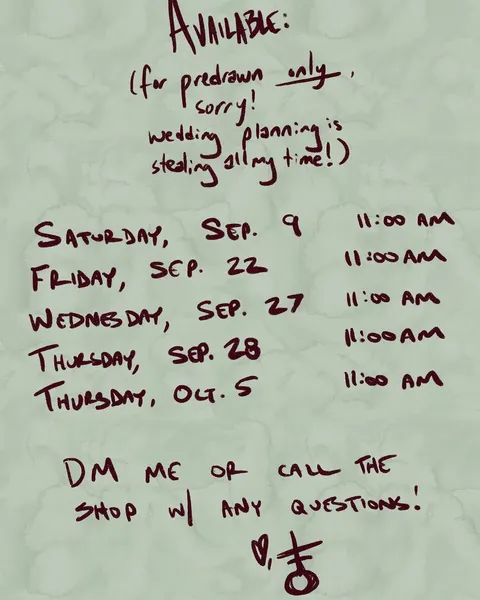 AVAILABLE:
(for predrawn only,
sorry!
wedding planning is
stealing all my time!)
SATURDAY, SEP. 9 11:00 AM
FRIDAY, SEP. 22 11:00 AM
WEDNESDAY, SEP. 27 11:00 AM
THURSDAY, SEP. 28 11:00 AM
THURSDAY, OCT. 5 11:00 AM
DM ME OR CALL THE
SHOP W/ ANY QUESTIONS!